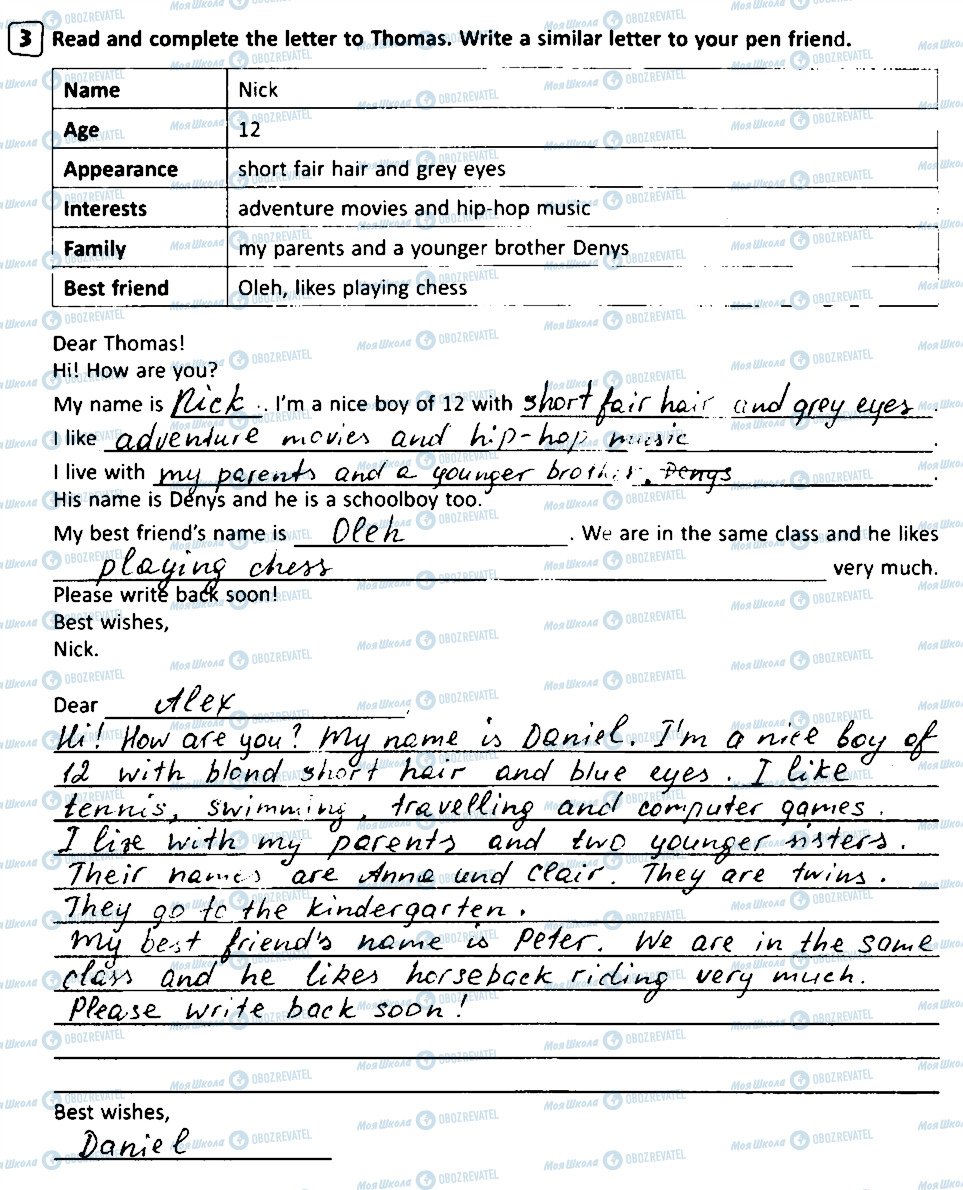 3 Read and complete the letter to Thomas. Write a similar letter to your pen friend.
Name Nick
Age 12
Appearance short fair hair and grey eyes
Interests adventure movies and hip-hop music
Family my parents and a younger brother Denys
Best friend Oleh, likes playing chess
Dear Thomas!
Hi! How are you?
My name is Nick. I'm a nice boy of 12 with short fair hair and grey eyes.
I like adventure movies and hip-hop music.
I live with my parents and a younger brother. Denys.
His name is Denys and he is a schoolboy too.
My best friend's name is Oleh. We are in the same class and he likes
playing chess very much.
Please write back soon!
Best wishes,
Nick.
Dear Alex,
Hi! How are you? My name is Daniel. I'm a nice boy of
12 with blond short hair and blue eyes. I like
tennis, swimming, travelling and computer games.
I live with my parents and two younger sisters.
Their names are Anna and Clair. They are twins.
They go to the kindergarten.
My best friend's name is Peter. We are in the same
class and he likes horseback riding very much.
Please write back soon!
Best wishes,
Daniel
Моя Школа OBOZREVATEL